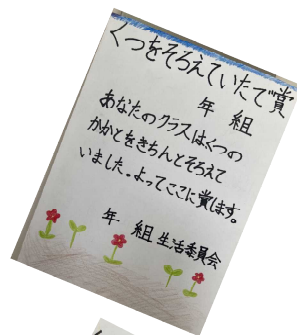 くつをそろえていたで賞
年 組
あなたのクラスはくつの
かかとをきちんとそろえて
いました。よってここに賞します。
年 組 生活委員会